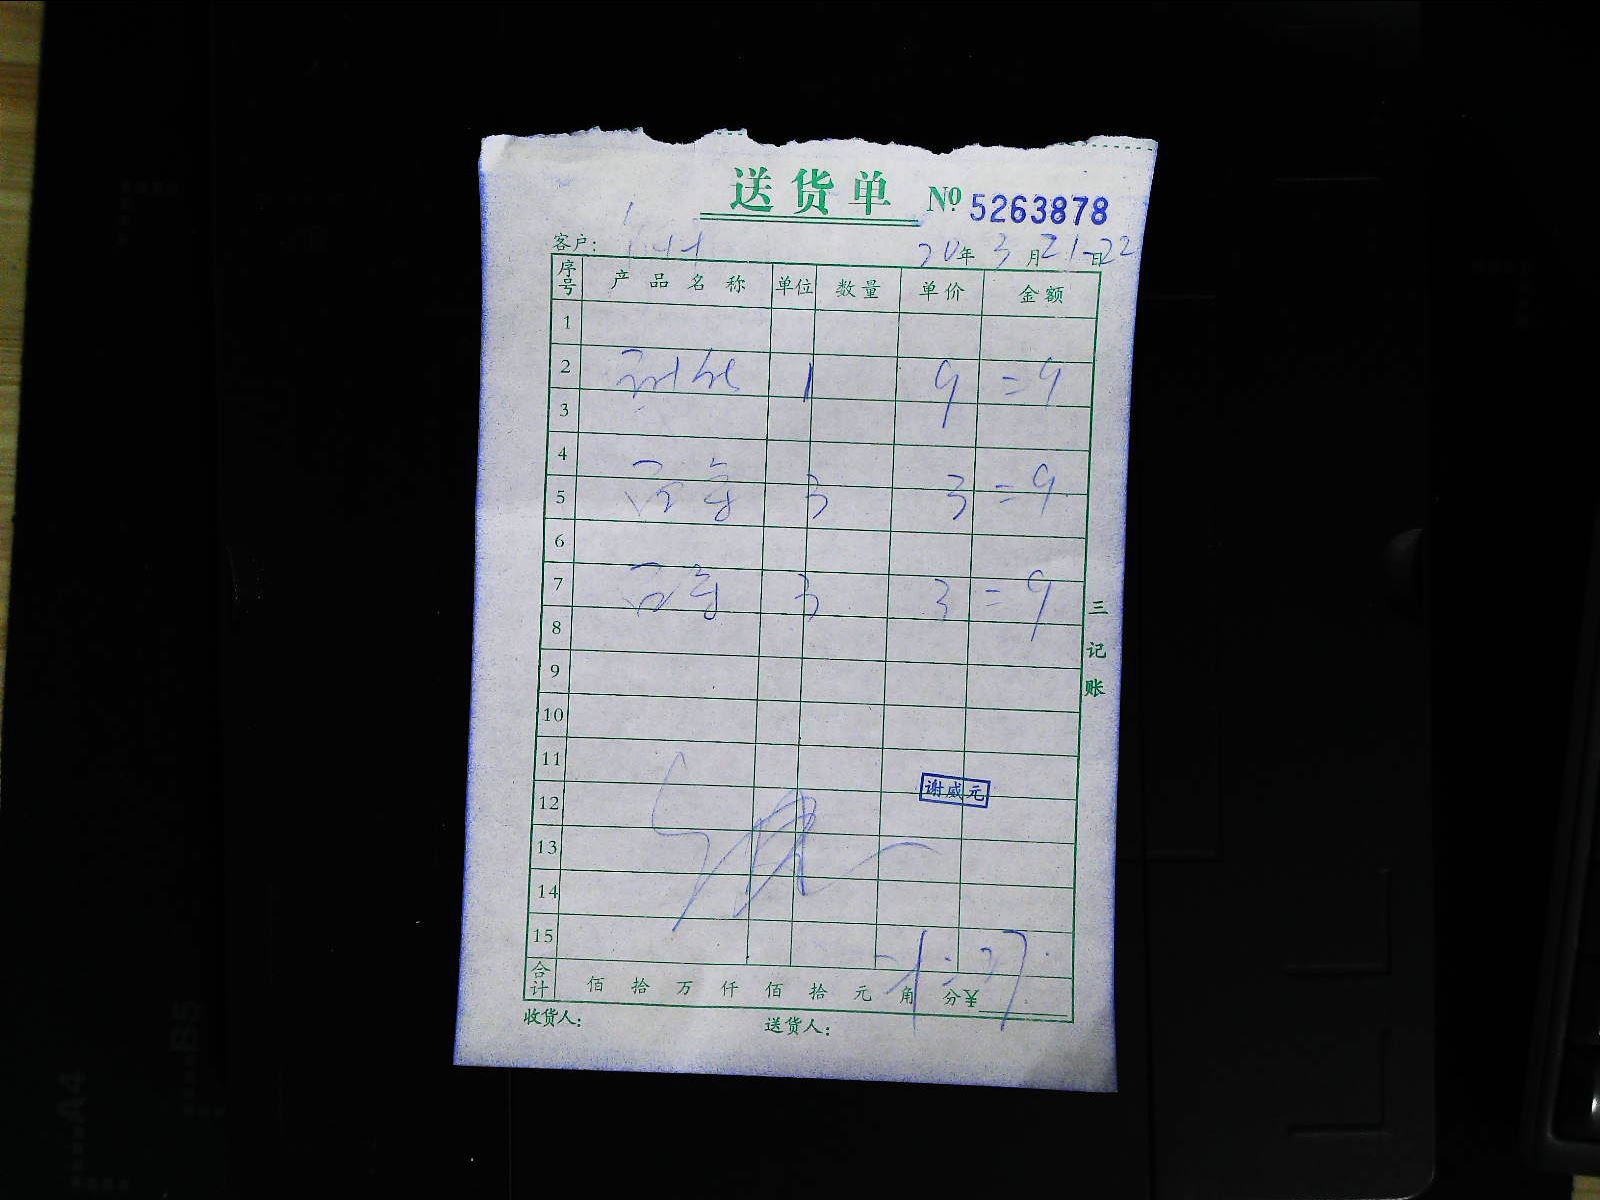 送货单 № 5263878
客户： 20年 3月21-22日
序号 产品名称 单位 数量 单价 金额
1
2 1 9 =9
3
4
5 3 3 =9
6
7 3 3 =9
8
9
10
11
谢威元
12
13
14
15
27
合计 佰 拾 万 仟 佰 拾 元 角 分 ¥
收货人： 送货人：
三记账
A4
B5